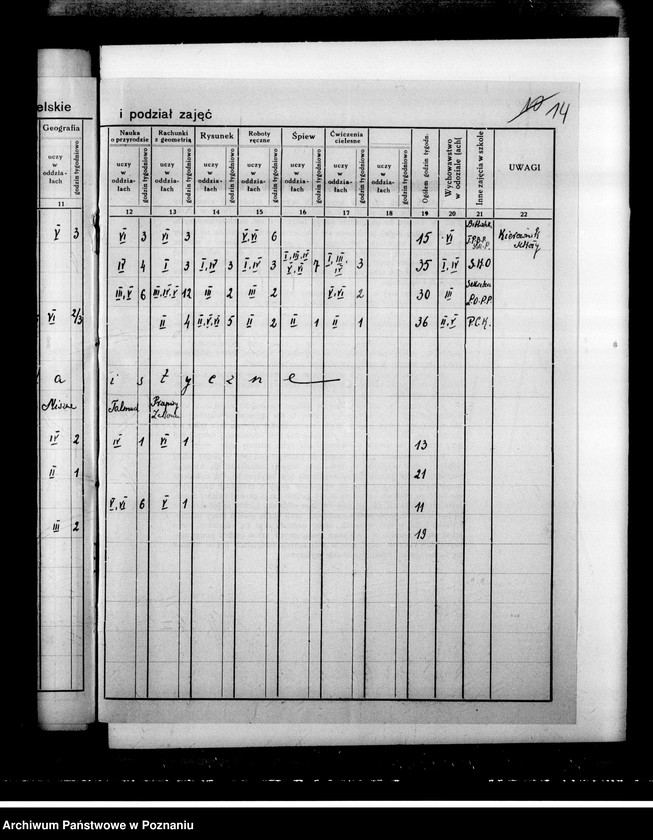 elskie
i podział zajęć
14
Geografia
Nauka o przyrodzie
Rachunki z geometrią
Rysunek
Roboty ręczne
Śpiew
Ćwiczenia cielesne
uczy w oddzia-łach
godzin tygodniowo
uczy w oddzia-łach
godzin tygodniowo
uczy w oddzia-łach
godzin tygodniowo
uczy w oddzia-łach
godzin tygodniowo
uczy w oddzia-łach
godzin tygodniowo
uczy w oddzia-łach
godzin tygodniowo
uczy w oddzia-łach
godzin tygodniowo
uczy w oddzia-łach
godzin tygodniowo
Ogółem godzin tygodn.
Wychowawstwo w oddziale (ach)
Inne zajęcia w szkole
UWAGI
11 12 13 14 15 16 17 18 19 20 21 22
V 3 VI 3 VI 3 V, VI 6 15 VI Kierownik szkoły
IV 4 I 3 I, IV 3 I, IV 3 I, III, IV V, VI 7 I, III, IV 3 35 I, IV S.K.O
III, V 6 III, IV, V 12 III 2 III 2 V, VI 2 30 III L.O.P.P.
VI 2/3 II 4 II, V, VI 5 II 2 II 1 II 1 36 II, V P.C.K.
a i s t y c z n e
Talmud
IV 2 IV 1 VI 1 13
II 1 21
V, VI 6 V 1 11
III 2 19
Archiwum Państwowe w Poznaniu